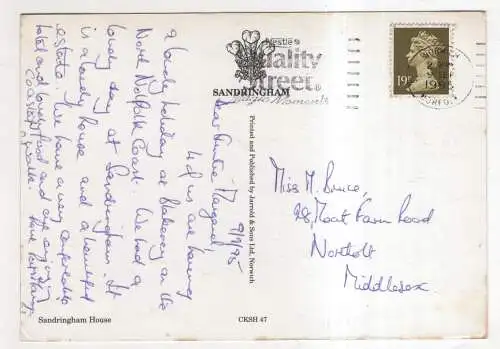 Nestlé
Quality
Street.
Magic Moments
SANDRINGHAM
19P
NORFOLK
9/9/95
Dear Auntie Margaret,
4 of us are having
a lovely holiday at Blakeney on the
North Norfolk Coast. We had a
lovely day at Sandringham. It
is a lovely house and a beautiful
estate. We have a very comfortable
hotel and lovely food and are enjoying
coastal walks.
Miss M. Bruce,
98, Moat Farm Road
Northolt
Middlesex.
Printed and Published by Jarrold & Sons Ltd, Norwich
Sandringham House
CKSH 47